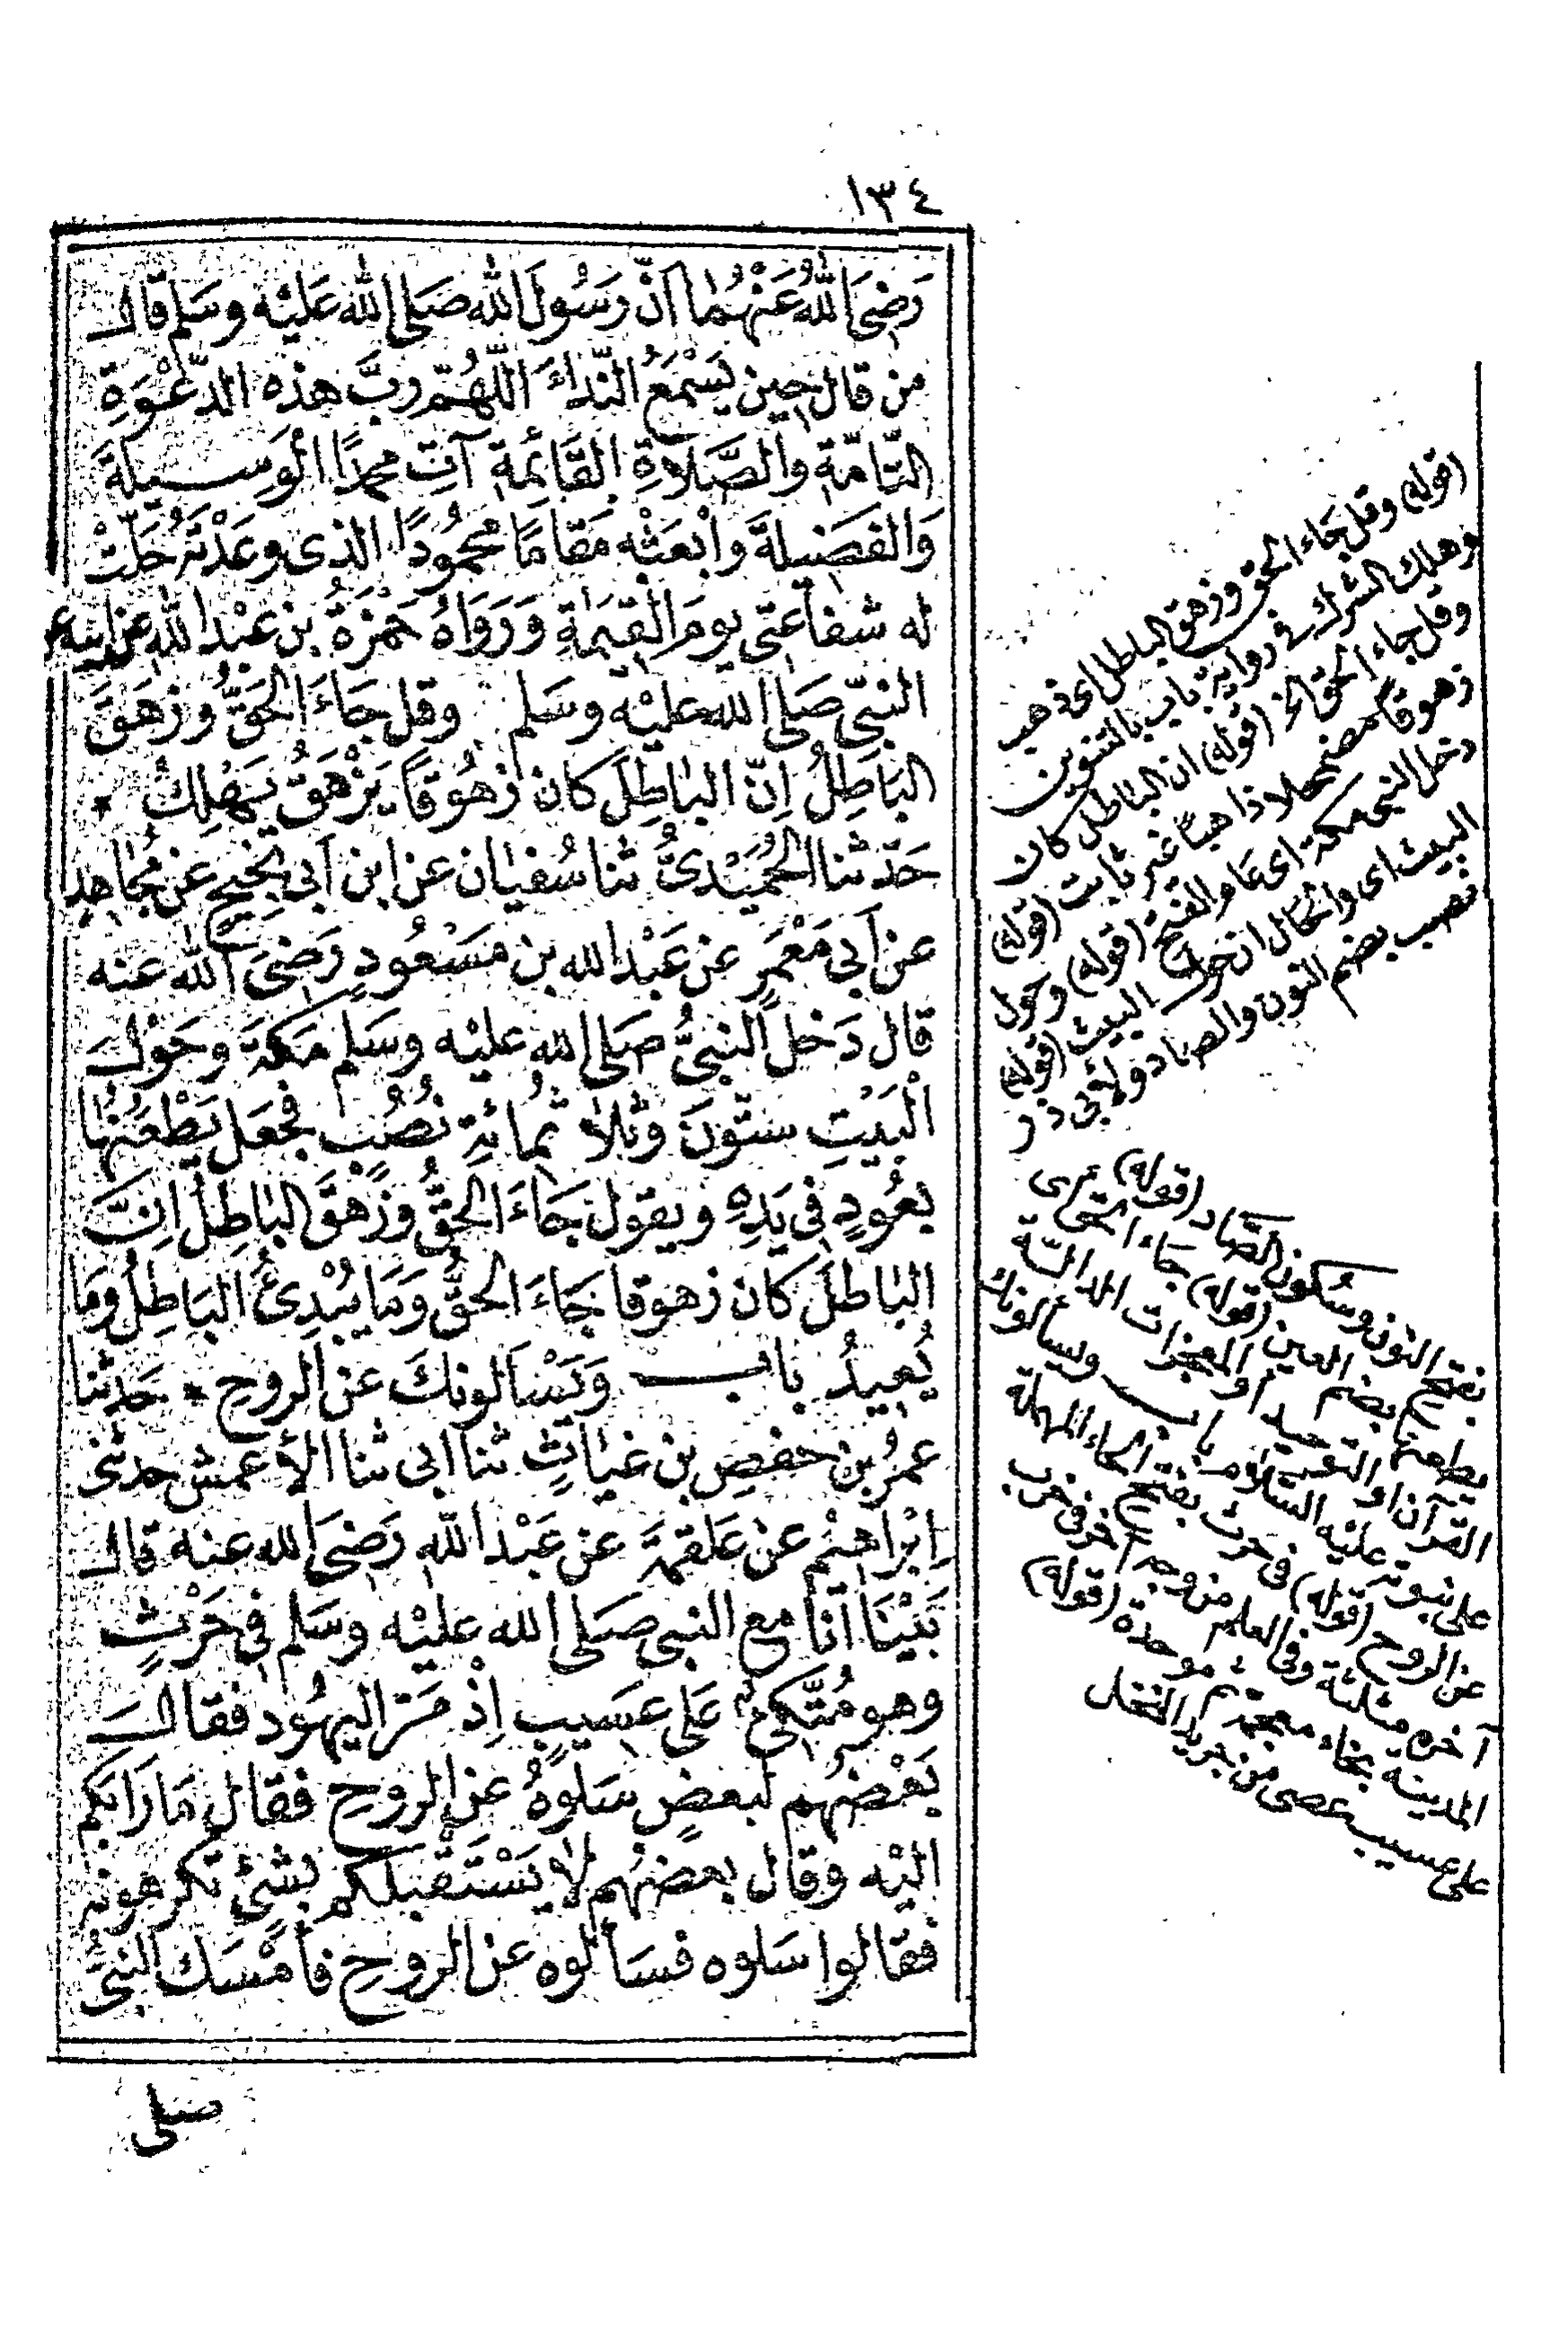 ١٣٤
رَضِىَ اللهُ عَنْهُما اَنّ رَسُولَ الله صَلى الله عَليْه وسَلم قال
من قال حِين يَسْمَعُ النّدَاءَ اَللّهُمّ رَبَّ هذه الدّعْوَةِ
التّامّةِ والصَّلاةِ القَائمَةِ آتِ محمدًا الوَسِيلَةَ
وَالفَضِيلةَ وابْعَثْه مَقامًا مَحمُودًا الذى وعَدْتَهُ حَلّتْ
له شفاعَتى يومَ القِيمَةِ وَرَوَاهُ حَمْزةُ بن عَبْدالله عن ابيه عن
النبىّ صَلى الله عليْه وسَلم وقل جَاءَ الحَقُّ وزهَقَ
البَاطِلُ اِنّ البَاطِلَ كان زهُوقًا يَزْهَقُ يَهْلِكُ *
حَدّثنا الحُمَيْدىُّ ثنا سُفيان عن ابن اَبى نجِيحٍ عن مُجاهدٍ
عن اَبى مَعْمَرٍ عن عَبْدالله بن مَسْعُودٍ رَضِىَ الله عنه
قال دَخلَ النبىُّ صَلى الله عليْه وسَلم مَكةَ وحَوْلَ
الْبَيْتِ سِتّونَ وثلاثمائةِ نُصُبٍ فجَعَل يَطْعَنُهَا
بعُودٍ فى يَدِهِ ويقول جَاءَ الحَقُّ وزَهَقَ الباطِلُ اِنَّ
الباطلَ كان زهوقا جَاءَ الحَقُّ وَمَا يُبْدِئُ البَاطِلُ ومَا
يُعِيدُ باب وَيَسْاَلونكَ عن الروحِ * حَدثنا
عمرُ بن حفصِ بن غياثٍ ثنا ابى ثنا الأعمش حدثنى
اِبْرَاهِيْم عن عَلقمةَ عن عَبْدالله رَضىَ الله عنه قال
بَيْنَا اَنا مع النبى صَلى الله عليْه وسَلم فى حَرْثٍ
وهو مُتّكِئٌ عَلى عسِيبٍ اِذْ مَرّ اليهُود فقالَ
بَعْضهُم لبَعضٍ سَلوهُ عن الروحِ فقال مَا رَابَكم
اليْه وقال بعضهُم لا يَسْتَقْبلكم بشئ تكرهونه
فقالوا سَلوه فسَألوه عن الروحِ فأمْسَك النبىُّ
صلى
(قوله) وقل جاء الحق وزهق الباطل اى ذهب
وهلك الشرك فى رواية باب بالتنوين
وقل جاء الحق الخ (قوله) ان الباطل كان
زهوقا مضمحلا ذاهبا غير ثابت (قوله)
دخل النبى مكة اى عام الفتح (قوله) وحول
البيت اى والحال ان حول البيت (قوله)
نصب بضم النون والصاد ولابى ذر
بفتح النون وسكون الصاد (قوله)
يطعنها بضم العين (قوله) جاء الحق اى
القرآن او التوحيد او المعجزات الدالة
على نبوته عليه السلام باب ويسألونك
عن الروح (قوله) فى حرث بفتح الحاء المهملة
آخره مثلثة وفى العلم من وجه آخر فى خرب
المدينة بخاء معجمة ثم موحدة (قوله)
على عسيب عصى من جريد النخل